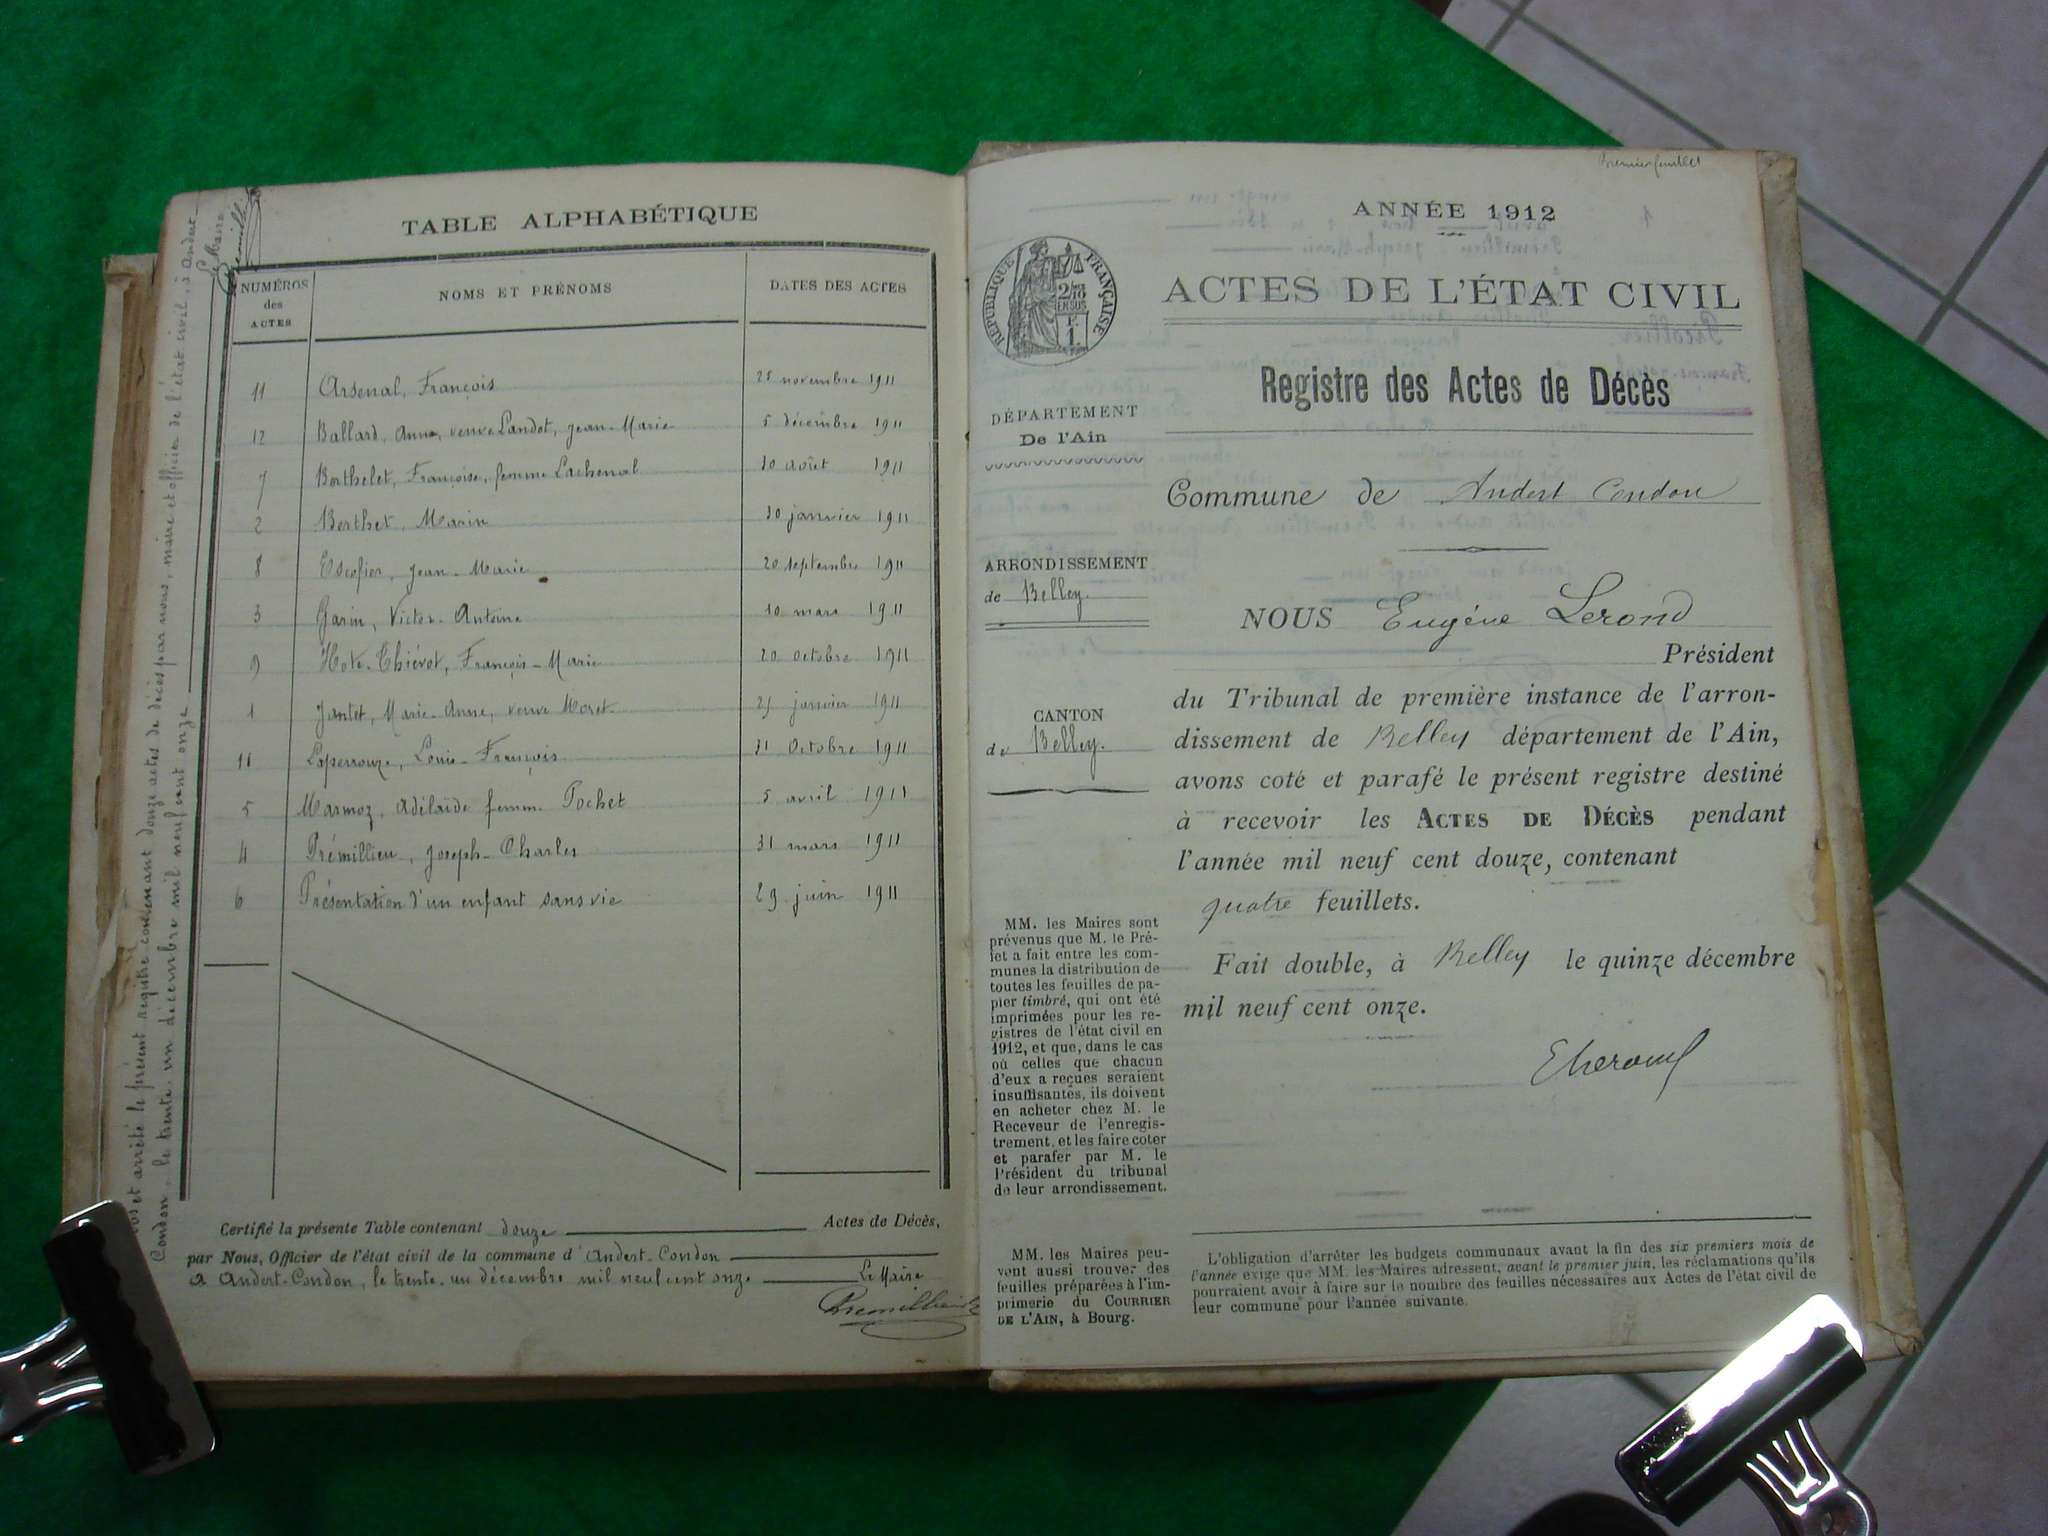 TABLE ALPHABÉTIQUE
NUMÉROS des ACTES NOMS ET PRÉNOMS DATES DES ACTES
11 Arsenal, François 25 novembre 1911
12 Ballard, Anne, veuve Landot, Jean-Marie 5 décembre 1911
7 Berthelet, Françoise, femme Lachenal 10 août 1911
2 Berthet, Marin 30 janvier 1911
8 Escofier, Jean-Marie 20 septembre 1911
3 Garin, Victor-Antoine 10 mars 1911
9 Hote-Thiévot, François-Marie 20 octobre 1911
1 Jantet, Marie-Anne, veuve Moret janvier 1911
Laperrouze, Louis-François 31 Octobre 1911
5 Marmoz, Adélaïde femme Pochet 5 avril 1911
4 Prémillieu, Joseph-Charles 31 mars 1911
6 Présentation d'un enfant sans vie 29 juin 1911
Certifié la présente Table contenant douze Actes de Décès,
par Nous, Officier de l'état civil de la commune d'Andert-Condon
A Andert-Condon, le trente-un décembre mil neuf cent onze Le Maire
Premillieu
Clos et arrêté le présent registre contenant douze actes de décès par nous, maire et officier de l'état civil, à Andert
Condon, le trente-un décembre mil neuf cent onze
Le Maire
Premillieu
Premier feuillet
ANNÉE 1912
RÉPUBLIQUE FRANÇAISE
2/10 EN SUS
F.
1.
ACTES DE L'ÉTAT CIVIL
Registre des Actes de Décès
DÉPARTEMENT
De l'Ain
Commune de Andert Condon
ARRONDISSEMENT
de Belley.
NOUS Eugène Lerond
Président
CANTON
de Belley.
du Tribunal de première instance de l'arron-
dissement de Belley département de l'Ain,
avons coté et parafé le présent registre destiné
à recevoir les ACTES DE DÉCÈS pendant
l'année mil neuf cent douze, contenant
quatre feuillets.
Fait double, à Belley le quinze décembre
mil neuf cent onze.
ELerond
MM. les Maires sont
prévenus que M. le Pré-
fet a fait entre les com-
munes la distribution de
toutes les feuilles de pa-
pier timbré, qui ont été
imprimées pour les re-
gistres de l'état civil en
1912, et que, dans le cas
où celles que chacun
d'eux a reçues seraient
insuffisantes, ils doivent
en acheter chez M. le
Receveur de l'enregis-
trement, et les faire coter
et parafer par M. le
Président du tribunal
de leur arrondissement.
MM. les Maires peu-
vent aussi trouver des
feuilles préparées à l'im-
primerie du COURRIER
DE L'AIN, à Bourg.
L'obligation d'arrêter les budgets communaux avant la fin des six premiers mois de
l'année exige que MM. les Maires adressent, avant le premier juin, les réclamations qu'ils
pourraient avoir à faire sur le nombre des feuilles nécessaires aux Actes de l'état civil de
leur commune pour l'année suivante.